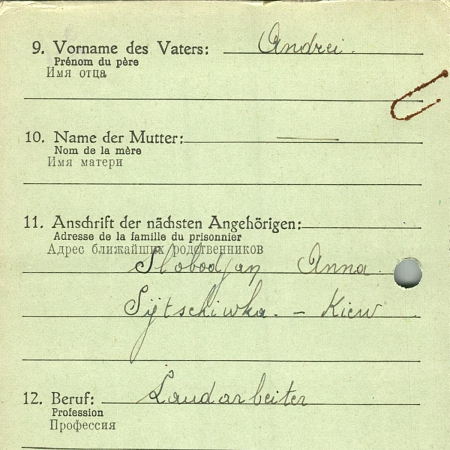 9. Vorname des Vaters: Andrei.
Prénom du père
Имя отца
10. Name der Mutter: —
Nom de la mère
Имя матери
11. Anschrift der nächsten Angehörigen:
Adresse de la famille du prisonnier
Адрес ближайших родственников
Slobodjan Anna
Sijtschiwka. – Kiew
12. Beruf: Landarbeiter
Profession
Профессия